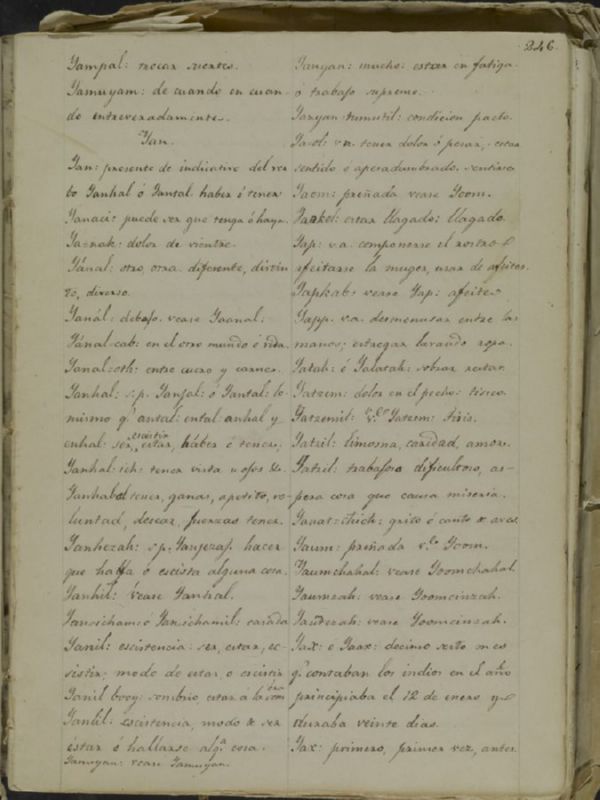 246.
Yampal: trocar suertes.
Yamuyam: de cuando en cuan-
do entreveradamente.
Yan.
Yan: presente de indicativo del ver
bo Yanhal ó Yantal. haber é tener
Yanaci: puede ser que tenga ó haya.
Ya-nak: dolor de vientre.
Yánal: otro, otra. diferente, distin
to, diverso.
Yanál: debajo. vease Yaanal.
Yánal cab: en el otro mundo ó vida.
Yanal: oth: entre cuero y carnes.
Yanhal: s.p. Yanjal: ó Yantal: lo
mismo q.e antal: ental: anhal y
enhal: ser, existir estar, háber é tener.
Yanhal: ich: tener vista u ojos &.
Yanhabol tener, ganas, apetito, vo-
luntad, desear, fuerzas tener.
Yanhezah: s.p. Yanjezaj. hacer
que halla ó escista alguna cosa.
Yanhil: vease Yanhal.
Yanichamó Yanichamil: casada
Yanil: escistencia: ser, estar, ec-
sistir; modo de estar ó escistir
Yanil booy: sombrio, estar á la som
bra
Yanlil: escistencia, modo de ser
éstar ó hallarse alg.a cosa.
Yamuyan: vease Yamuyan.
Yanyan: mucho: estar en fatiga
o trabajo supremo.
Yanyan-tumutil: condicion pacto.
Ya-ol: v.n. tener dolor ó pesar, estar
sentido é apesadumbrado. sentirse
Yaom: preñada vease Yoom.
Yaakel: estar llagado; llagado.
Yap: v.a. componerse el rostro ó
afeitarse la muger, usar de afeites.
Yapkab: vease Yap: afeite
Yapp. v.a. desmenusar entre las
manos; estregar lavando ropa.
Yatah: é Yalatah: sobrar restar.
Yatzem: dolor en el pecho: tisico.
Yatzemil: v.e Yatzem: tisis.
Yatzil: limosna, caridad, amor.
Yatzil: trabajoso dificultoso, as-
pera cosa que causa miseria.
Yauat: chich: grito ó canto de aves.
Yaum: preñada v.e Yoom.
Yaumchahal: vease Yoomchahal.
Yaumzah: vease Yoomcinzah.
Yauzezah: vease Yoomcinzah.
Yax: é Yaax: decimo sexto mes
q.e contaban los indios en el año
principiaba el 12 de enero y
duraba veinte dias.
Yax: primero, primer vez, antes